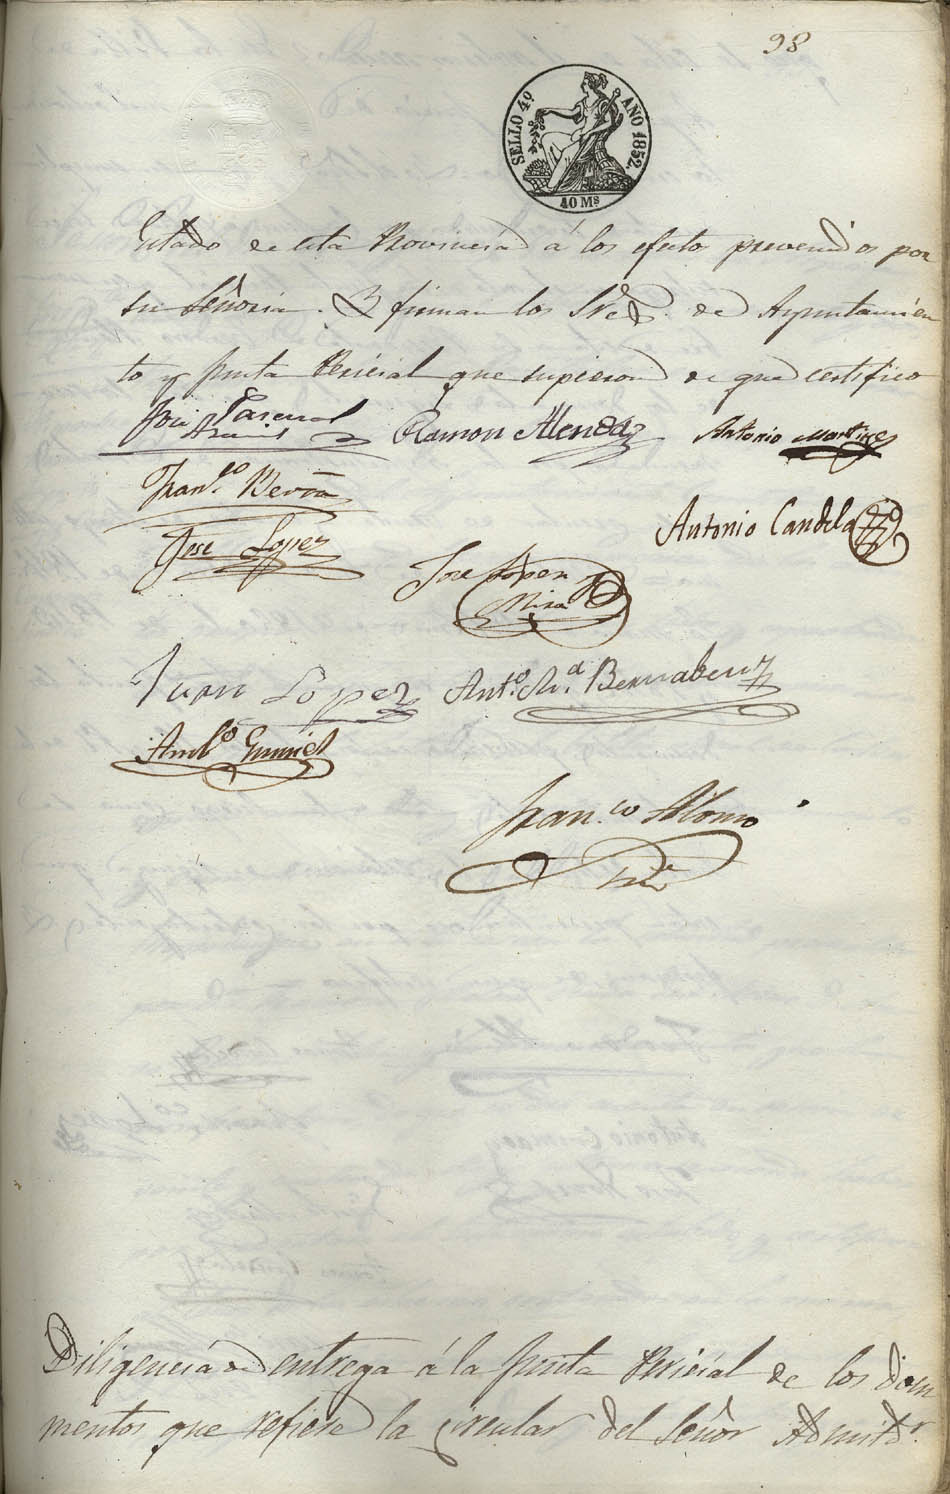 98
SELLO 4º AÑO 1852.
40 Ms
Estado de esta Provincia á los efectos prevenidos por
su Señoria. Y firman los Sres. de Ayuntamien
to y Junta Pericial que supieron de que certifico
José Pascual
Ramon Alendaz
Antonio Martinez
Franco.
Antonio Candela
Jose Lopez
Jose Lopez
Mira
Juan Lopez
Anto. Ma. Bernabeuz
Ambo.
Franco. Alonso
Diligencia de entrega á la Junta Pericial de los docu
mentos que refiere la circular del Señor Admitdr.